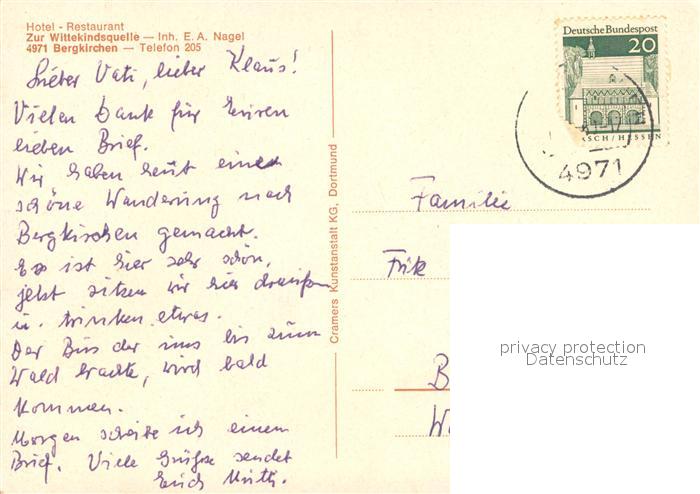 Hotel - Restaurant
Zur Wittekindsquelle — Inh. E. A. Nagel
4971 Bergkirchen — Telefon 205
Lieber Vati, lieber Klaus!
Vielen Dank für Euren
lieben Brief.
Wir haben heut eine
schöne Wanderung nach
Bergkirchen gemacht.
Es ist hier sehr schön,
jetzt sitzen wir hier draußen
u. trinken etwas.
Der Bus der uns bis zum
Wald brachte, wird bald
kommen.
Morgen schreibe ich einen
Brief. Viele Grüße sendet
Euch Mutti.
Cramers Kunstanstalt KG, Dortmund
Deutsche Bundespost
20
RSCH/HESSEN
4971
Familie
Frit
B
W
privacy protection
Datenschutz